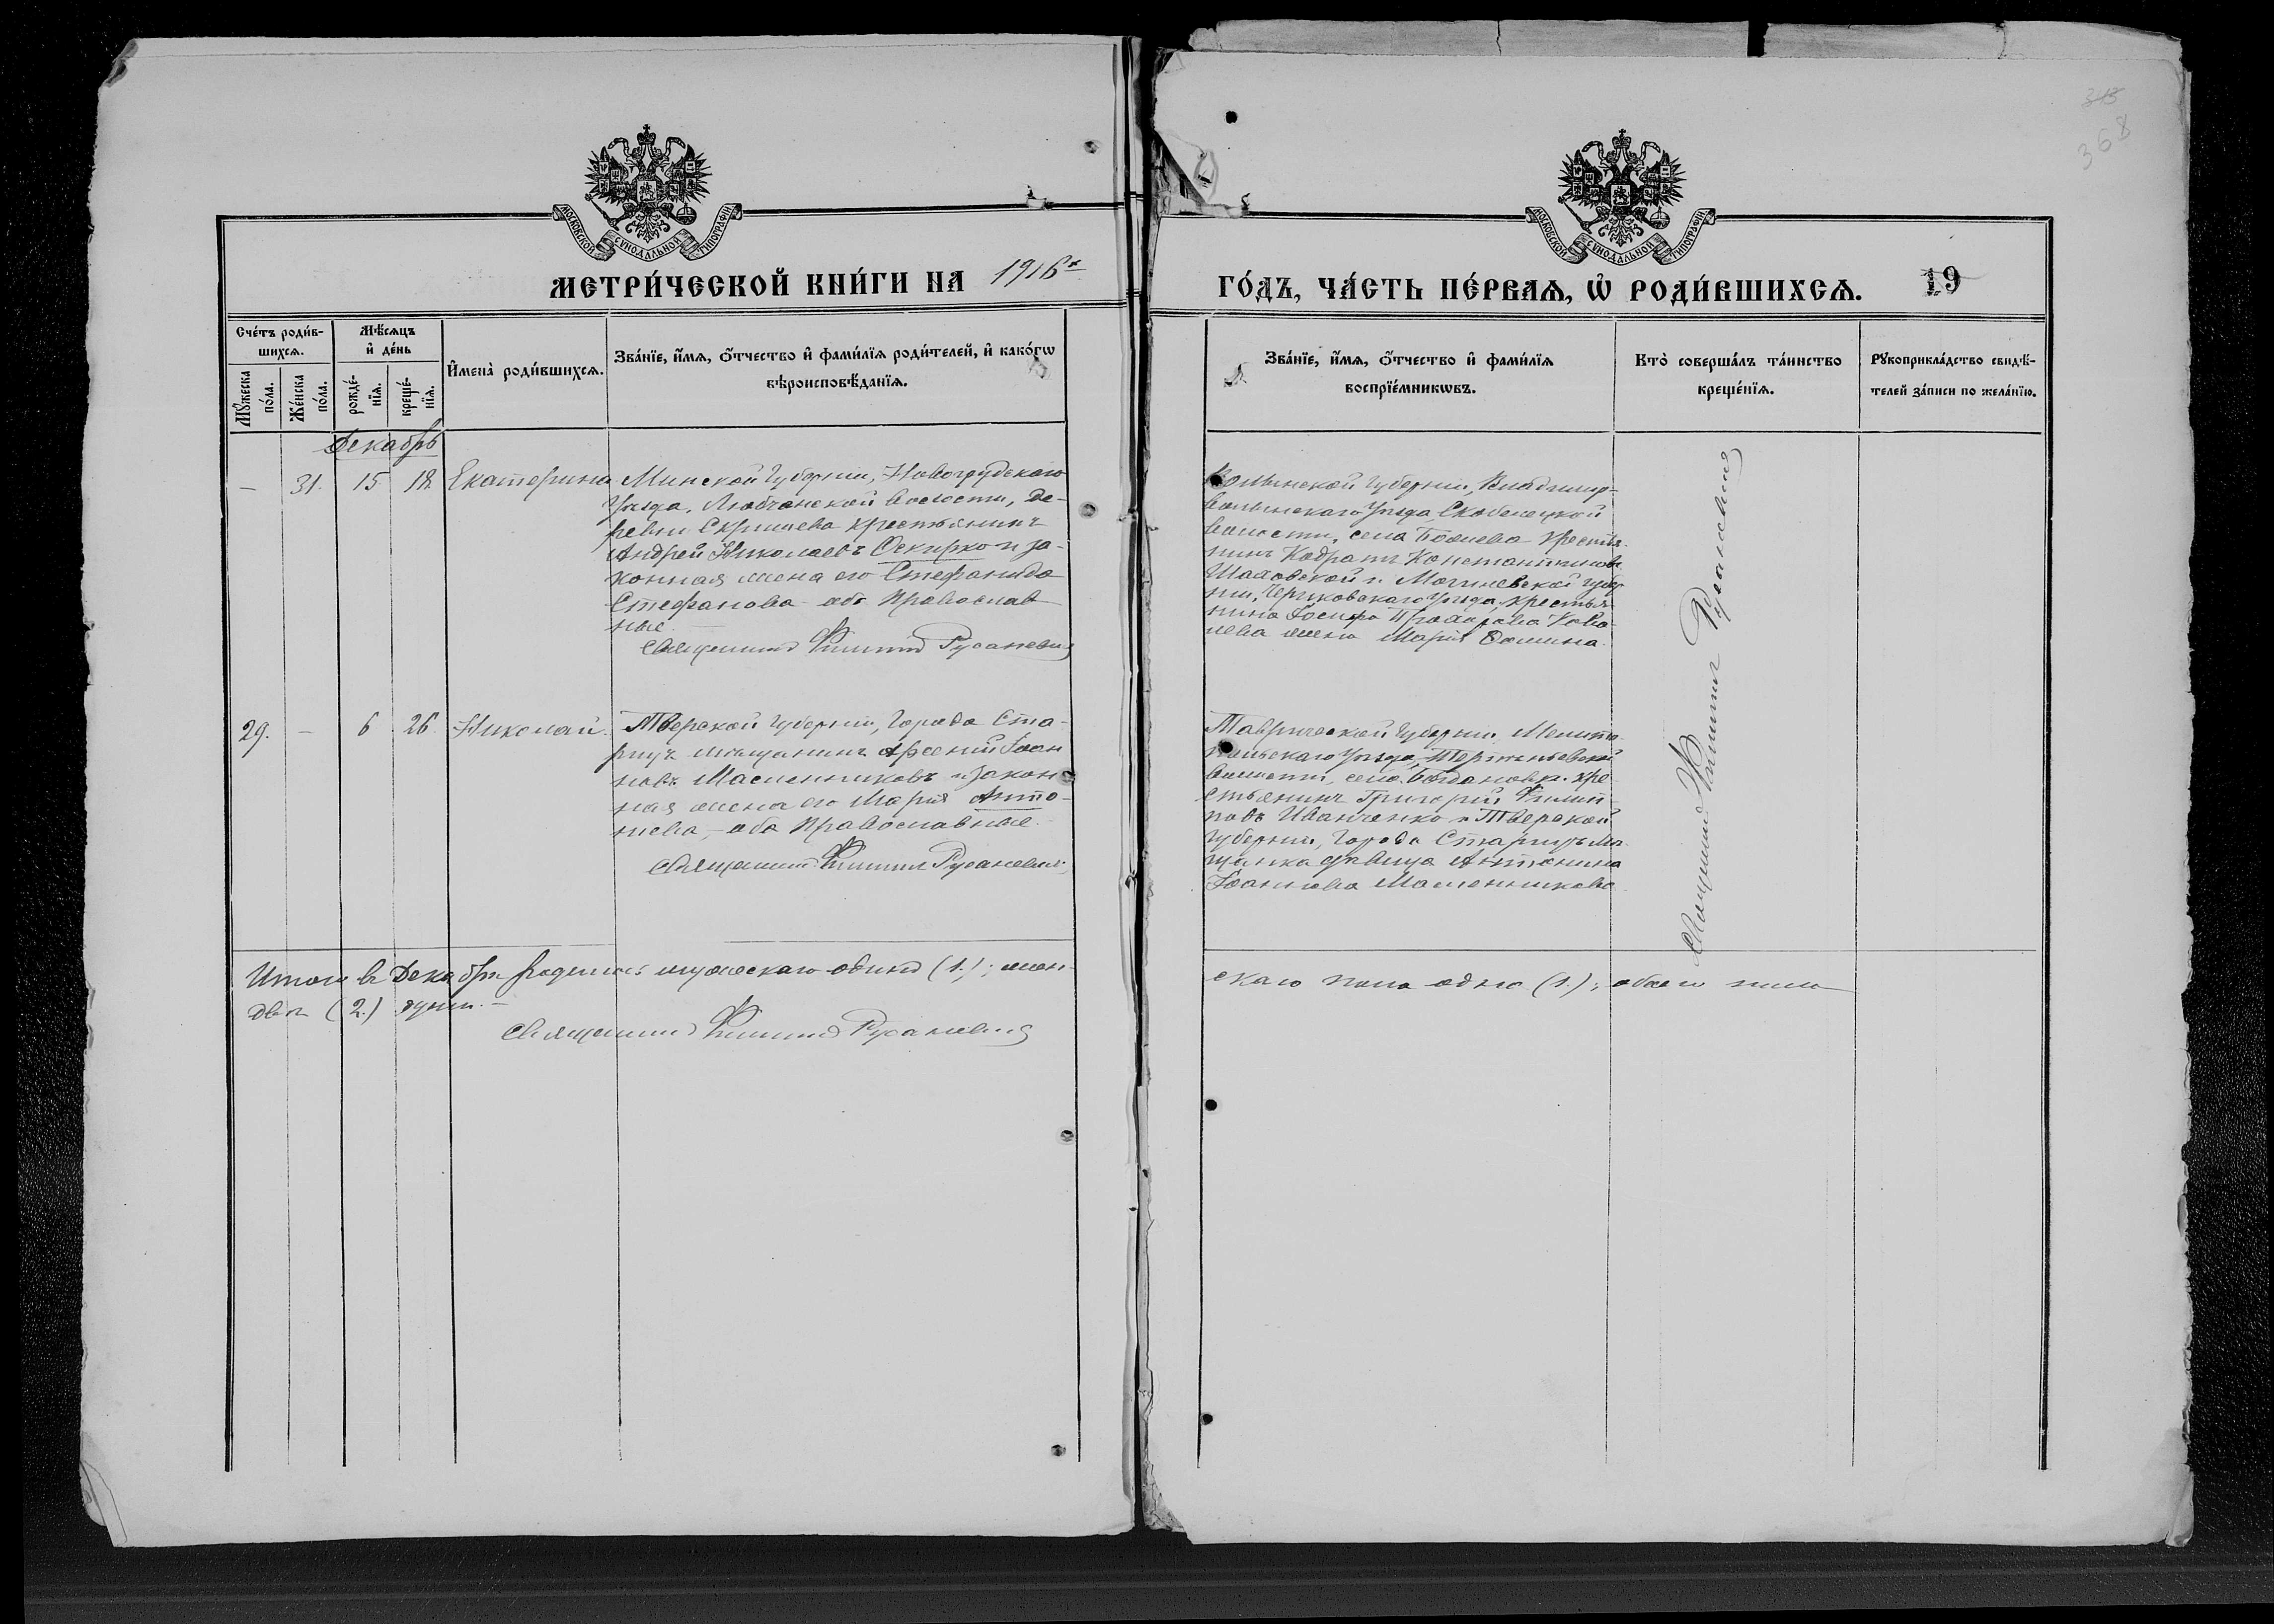 313
368
МОСКОВСКОЙ СѴНОДАЛЬНОЙ ТИПОГРАФІИ
МОСКОВСКОЙ СѴНОДАЛЬНОЙ ТИПОГРАФІИ
МЕТРИ́ЧЕСКОЙ КНИ́ГИ НА 1916 ГО́ДЪ, ЧА́СТЬ ПЕ́РВАЯ, Ѡ РОДИ́ВШИХСЯ. 19
Сче́тъ роди́в-
шихся.
Мꙋ́жеска по́ла.
Же́нска по́ла.
Мѣ́сяцъ
и҆ де́нь
рожде́-
нїя.
креще́-
нїя.
И҆мена̀ роди́вшихся.
Зва́нїе, и҆́мя, ѻ҆́тчество и҆ фами́лїя роди́телей, и҆ како́гѡ
вѣроисповѣ́данїя.
Зва́нїе, и҆́мя, ѻ҆́тчество и҆ фами́лїя
воспрїе́мникѡвъ.
Кто̀ соверша́лъ та́инство
креще́нїя.
Рꙋкоприкла́дство свидѣ́-
телей за́писи по жела́нїю.
Декабрь
— 31. 15 18 Екатерина
Минской Губерніи, Новогрудскаго
Уѣзда, Любчанской волости, де-
ревни крестьянинъ
Андрей Николаевъ Оскирко и за-
конная жена его Стефанида
Стефанова оба православ-
ные
Священникъ Филиппъ Русаневичъ
Волынской Губерніи, Владимір-
волынскаго Уѣзда,
волости, села крестья-
нинъ Кодратъ Константиновъ
и Могилевской Губер
ніи, Чериковскаго Уѣзда, крестья-
нина Іосифа Кова-
лева жена Марія
29. — 6 26 Николай.
Тверской Губерніи, Города Ста-
рицъ мѣщанинъ Арсеній Іоан
новъ Масленниковъ и закон
ная жена его Марія Анто-
нова, – оба православные.
Священникъ Филиппъ Русаневичъ
Таврической Губерніи, Мелито-
польскаго Уѣзда,
волости, села Богдановка кре-
стьянинъ Григорій Филип-
повъ Иванченко и Тверской
Губерніи, Города Старицъ мѣ-
щанка дѣвица Антонина
Іоаннова Масленникова
Священникъ Филиппъ Русаневичъ
Итого въ Декабрѣ родилось мужескаго одинъ (1.); жен-
скаго пола одно (1.); обоего пола
двѣ (2.) души. —
Священникъ Филиппъ Русаневичъ